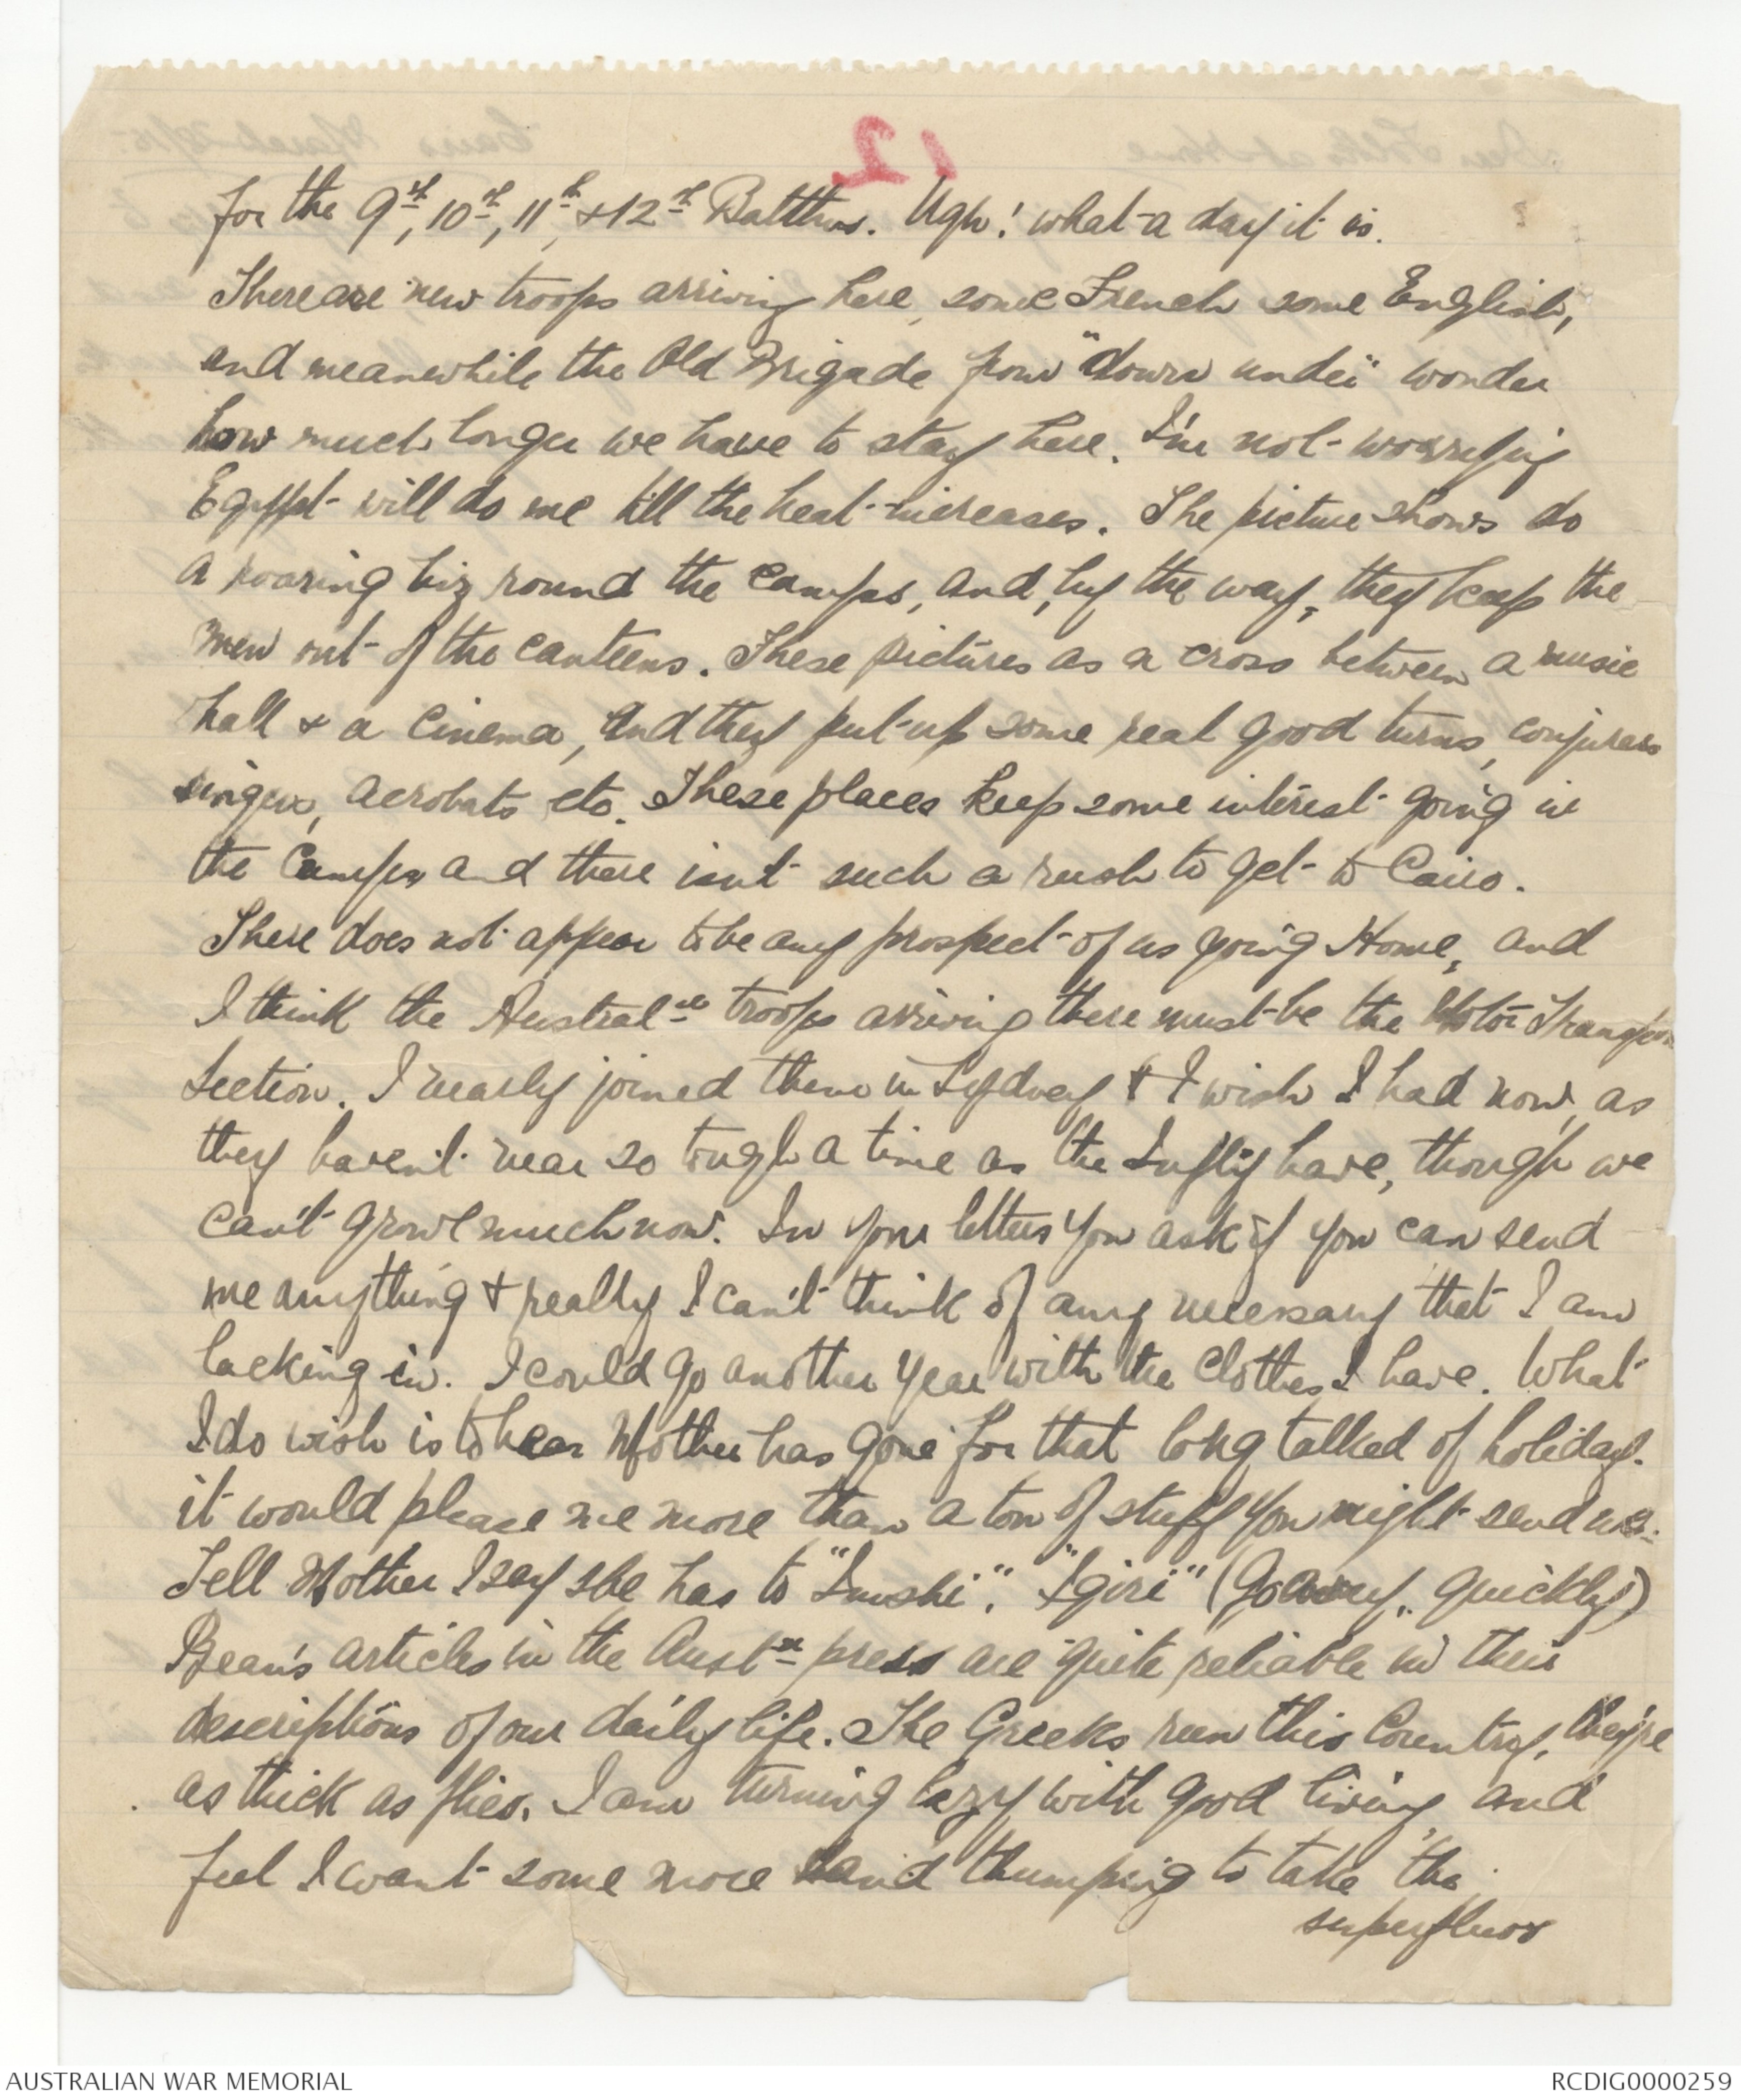 12
for the 9th, 10th, 11th, & 12th Battlns. Ugh! what a day it is.
There are new troops arriving here, some French some English,
and meanwhile the Old Brigade from "down under" wonder
how much longer we have to stay here. I'm not worrying
Egypt will do me till the heat increases. The picture shows do
a roaring biz round the camps, and, by the way, they keep the
men out of the canteens. These pictures as a cross between a music
hall & a Cinema, and they put up some real good turns, conjurers
singers, acrobats etc. These places keep some interest going in
the Camps and there isn't such a rush to get to Cairo.
There does not appear to be any prospect of us going Home, and
I think the Austral<sup>n</sup> troops arriving there must be the Motor Transport
Section. I nearly joined them in Sydney & I wish I had now, as
they haven't near so tough a time as the Inf'ty have, though we
can't growl much now. In your letters you ask if you can send
me anything & really I can't think of any necessary that I am
lacking in. I could go another year with the clothes I have. What
I do wish is to hear Mother has gone for that long talked of holiday.
it would please me more than a ton of stuff you might send me.
Tell Mother I say she has to "Imshi", "Igiri" (Go away, quickly)
Bean's articles in the Aust<sup>n</sup> press are quite reliable in their
descriptions of our daily life. The Greeks run this Country, they're
as thick as flies. I am turning lazy with good living, and
feel I want some more sand thumping to take the
superfluos
AUSTRALIAN WAR MEMORIAL
RCDIG0000259